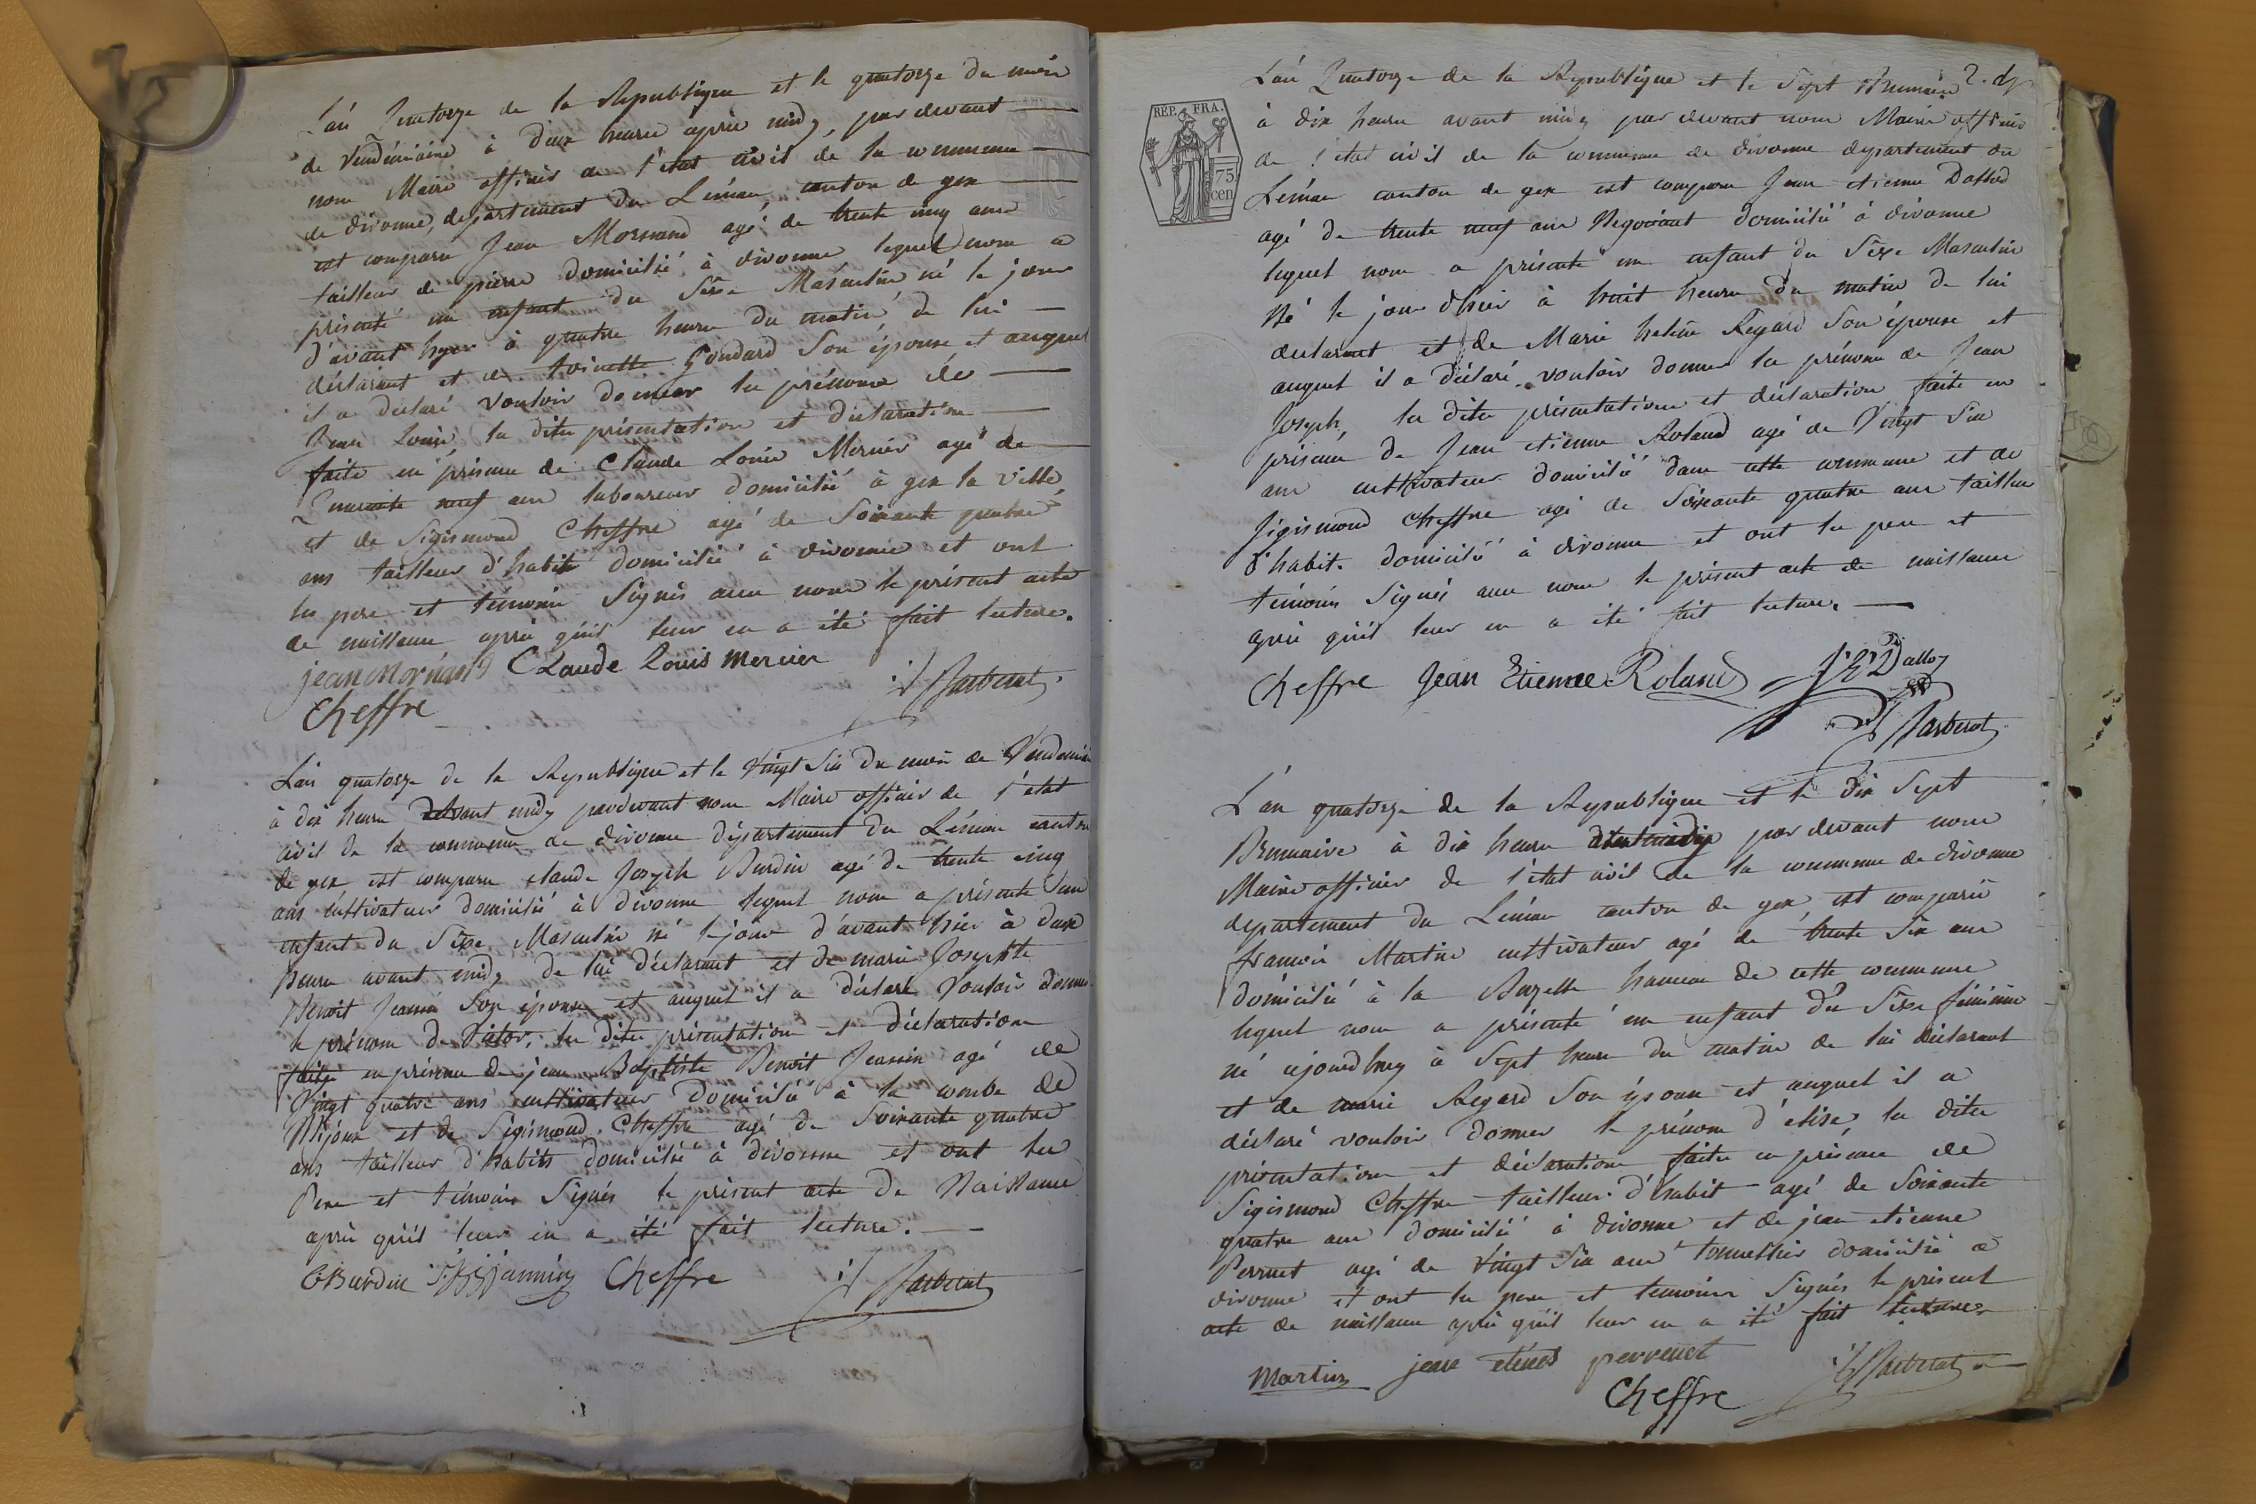 L'an Quatorze de la Republique et le quatorze du mois
de Vendemiaire à deux heures après midy, par devant
nous Maire officier de l'état civil de la commune
de divonne, departement du Léman, canton de gex
est comparu Jean Mornand agé de trente cinq ans
tailleur de pierre domicilié à divonne lequel nous a
présenté un enfant du Sexe Masculin né le jour
d'avant hyer à quatre heures du matin de lui
déclarant et de toinette Goudard Son épouse et auquel
il a déclaré vouloir donner les prénoms de
Jean Louis les dites présentation et déclaration
faite en présence de Claude Louis Mercier agé de
Quarante neuf ans laboureur domicilié à gex la ville
et de Sigismond Cheffre agé de Soixante quatre
ans tailleur d'habits domicilié à divonne et ont
les pere et témoins Signés avec nous le présent acte
de naissance après qu'il leur en a été fait lecture.
jean Mornand Claude Louis Mercier
Cheffre Barberat
L'an quatorze de la Republique et le Vingt Six du mois de Vendemiai
à dix heures avant midy pardevant nous Maire officier de l'état
civil de la commune de divonne département du Léman canton
de gex, est comparu claude Joseph Burdin agé de trente cinq
ans cultivateur domicilié à divonne lequel nous a présenté un
enfant du Sexe Masculin né le jour d'avant hier à deux
heures avant midy de lui déclarant et de marie Josephte
Benoit Jeannin Son épouse, et auquel il a déclaré Vouloir donner
le prénom de Victor, les dites présentation et déclaration
faites en présence de jean Baptiste Benoit Jeannin agé de
Vingt quatre ans cultivateur domicilié à la combe de
Mijoux et de Sigismond Cheffre agé de Soixante quatre
ans tailleur d'habits domicilié à divonne et ont les
Pere et témoins Signés le présent acte de Naissance
après qu'il leur en a été fait lecture.
Burdin jannin Cheffre Barberat
REP. FRA.
75
cen
L'an Quatorze de la Republique et le Sept Brumaire
à dix heures avant midy par devant nous Maire officier
de l'état civil de la commune de divonne departement du
Léman canton de gex est comparu Jean etienne Dalloz
agé de trente neuf ans Negociant domicilié à divonne
lequel nous a présenté un enfant du Sexe Masculin
Né le jour d'hier à huit heures du matin de lui
déclarant et de Marie heleine Regard Son épouse et
auquel il a déclaré vouloir donner les prénoms de Jean
Joseph, les dites présentation et déclaration faite en
présence de Jean etienne Roland agé de Vingt Six
ans cultivateur domicilié dans cette commune et de
Sigismond Cheffre agé de Soixante quatre ans tailleur
d'habit domicilié à divonne et ont les pere et
témoins Signés avec nous le présent acte de naissance
après qu'il leur en a été fait lecture.
Cheffre Jean Etienne Roland Dalloz
Barberat
L'an quatorze de la Republique et le dix Sept
Brumaire à dix heures avant midy par devant nous
Maire officier de l'état civil de la commune de divonne
departement du Léman canton de gex, est comparu
francois Martin cultivateur agé de trente Six ans
domicilié à la hameau de cette commune
lequel nous a présenté un enfant du Sexe féminin
né ajourdhuy à Sept heures du matin de lui déclarant
et de marie Regard Son épouse et auquel il a
déclaré vouloir donner le prénom d'elise, les dites
présentation et déclaration faites en présence de
Sigismond Cheffre tailleur d'habit agé de Soixante
quatre ans domicilié à divonne et de jean etienne
Perrenet agé de Vingt Six ans tonnellier domicilié à
divonne et ont les pere et temoins Signés le présent
acte de naissance après qu'il leur en a été fait lecture
Martin jean perrenet Barberat
Cheffre